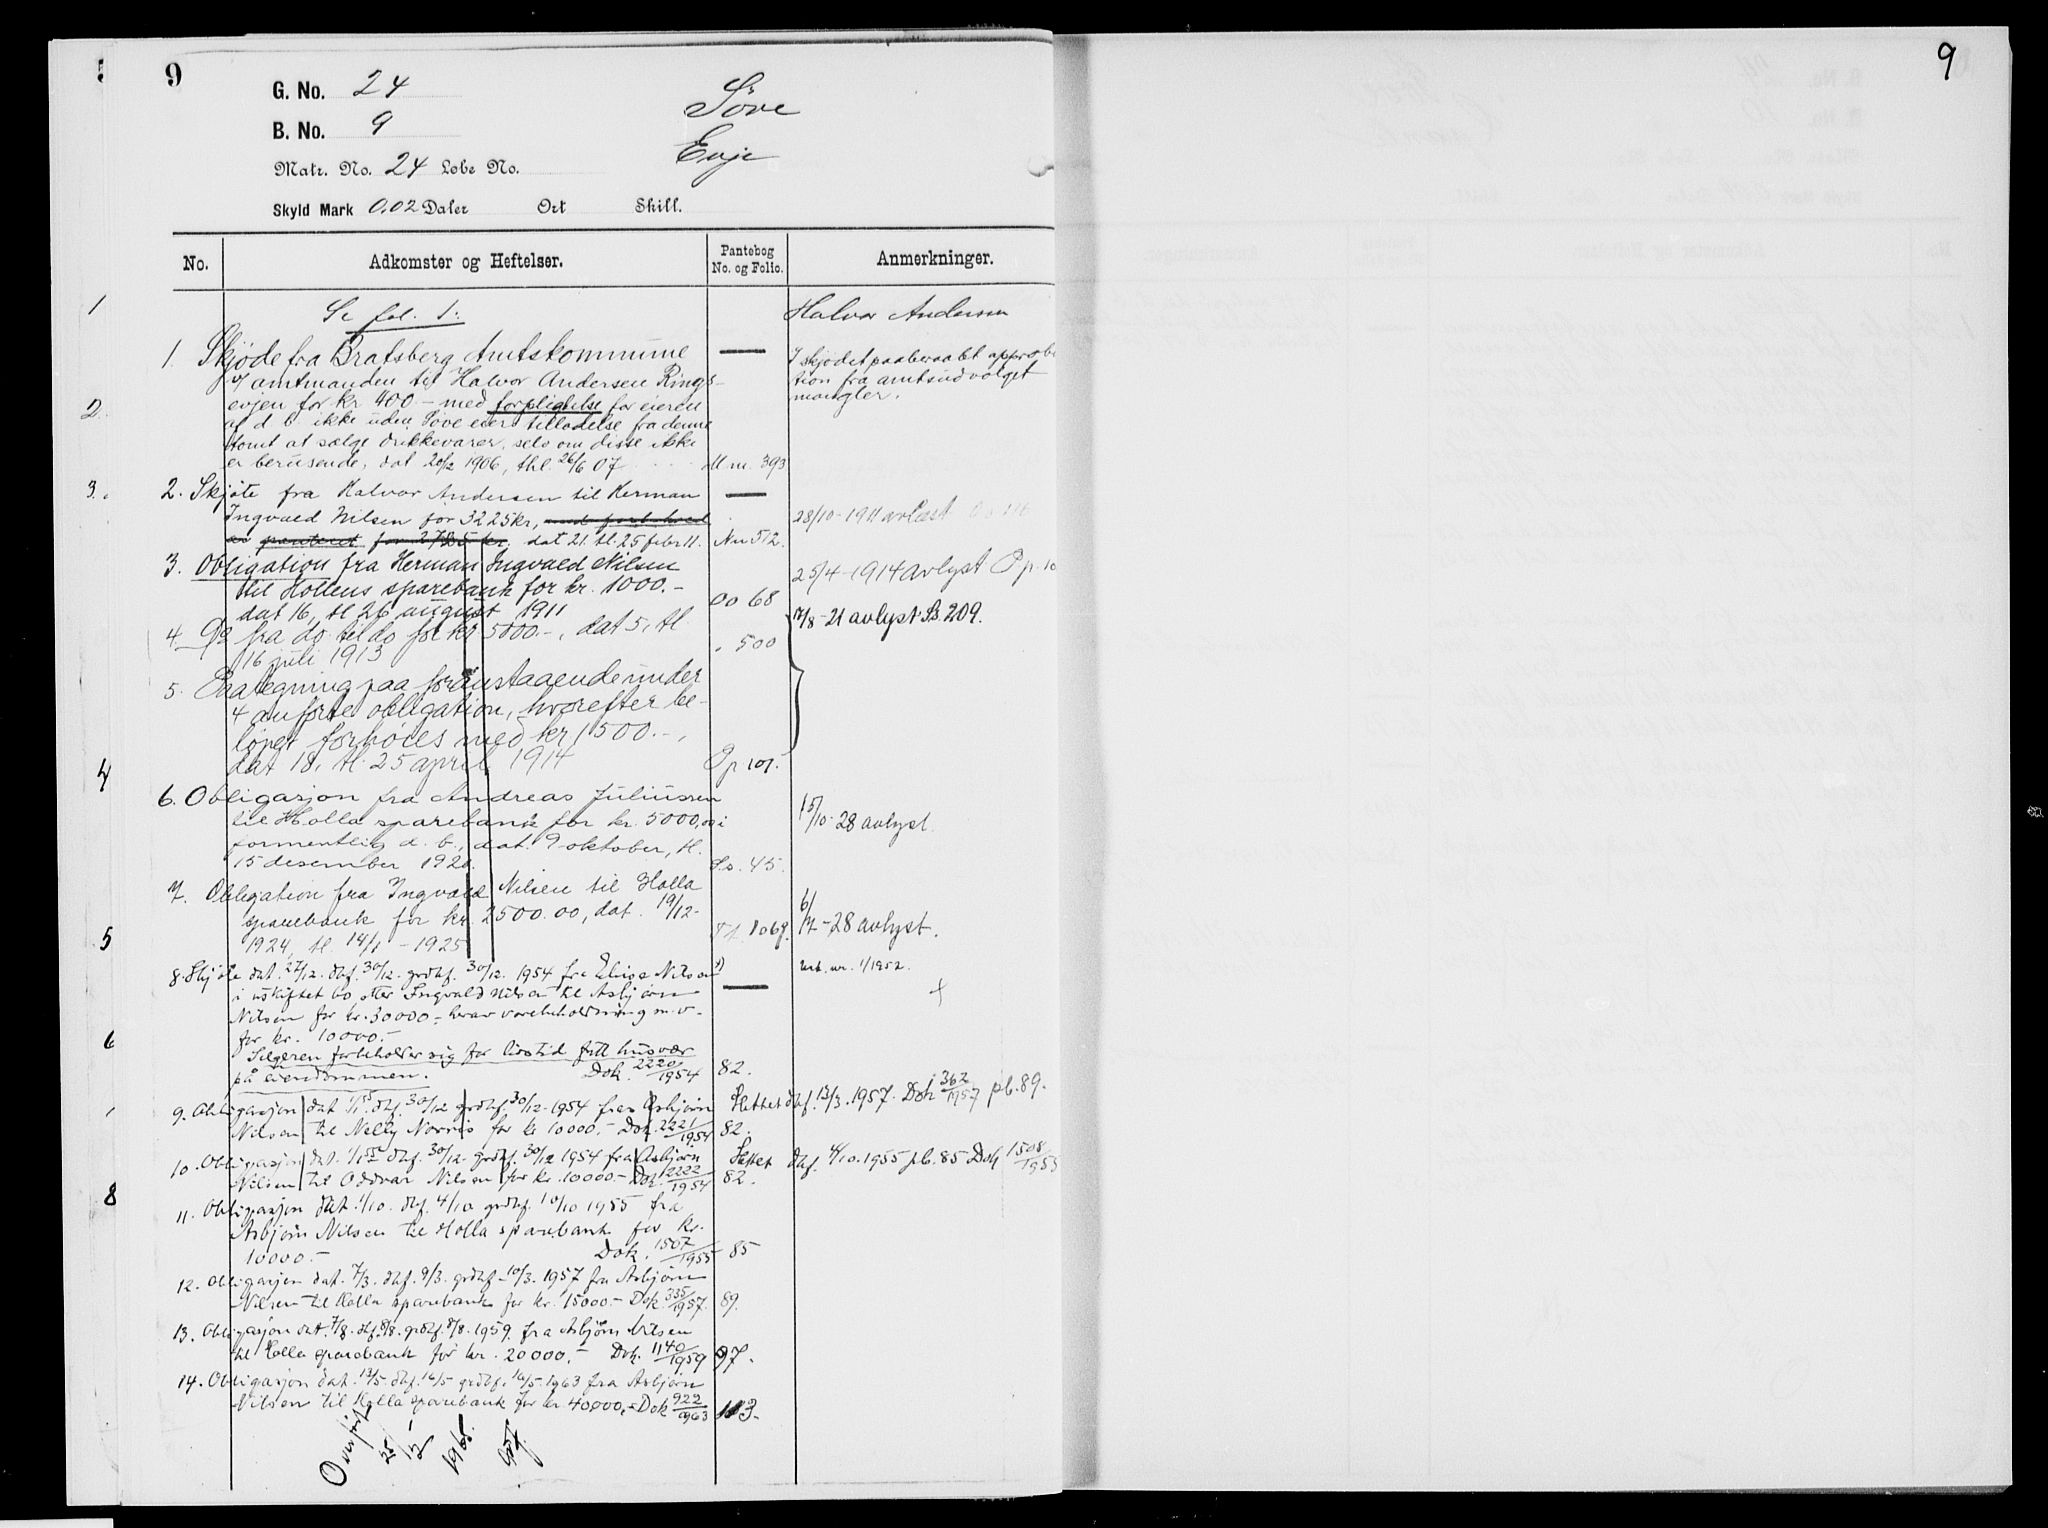 9
9
G. No. 24
Søve
B. No. 9
Evje
Matr. No. 24 Løbe No.
Skyld Mark 0.02 Daler Ort Skill.
No. Adkomster og Heftelser. Pantebog No. og Folio. Anmerkninger.
Se fol. 1.
Halvor Andersen
1. Skjøde fra Bratsberg Amtskommune
v/ amtmanden til Halvor Andersen Rings-
evjen for kr 400 – med forpligtelse for eieren
af d. b. ikke uden Søve eiers tilladelse fra denne
tomt at sælge drikkevarer, selv om disse ikke
er berusende, dat 20/2 1906, thl. 26/6 07 M.m. 393
I skjødet paaberaabt approba
tion fra amtsudvalget
mangler.
2. Skjøte fra Halvor Andersen til Herman
Ingvald Nilsen for 3225 kr, med forbehold
av panteret for 2725 kr, dat 21. tl. 25 febr 11. Nn 512.
28/10-1911 avlæst Oo
3. Obligation fra Herman Ingvald Nilsen
til Hollens sparebank for kr. 1000.-
dat 16, tl 26 august 1911 Oo 68
25/4-1914 avlyst Pp. 10
4. Do fra do til do for kr 5000.-, dat 5, tl
16 juli 1913 " 500
17/8-21 avlyst Ss. 209.
5. Paategning paa foranstaaende under
4 anførte obligation, hvorefter be-
løpet forhøies med kr 1500.-,
dat 18, tl. 25 april 1914 Pp 101.
6. Obligasjon fra Andreas Juliussen
til Holla sparebank for kr. 5000,00 i
formentlig d. b., dat. 9 oktober, tl.
15 desember 1920. Ss. 45.
15/10-28 avlyst.
7. Obligation fra Ingvald Nilsen til Holla
sparebank for kr. 2500.00, dat. 19/12-
1924, tl. 14/1-1925 Tt. 1069.
6/12-28 avlyst.
8. Skjøte dat. 27/12. dbf. 30/12. grdbf. 30/12. 1954 fra Nilsen
i uskiftet bo etter Ingvald Nilsen til Asbjørn
Nilsen for kr. 30000.- herav vorebeholdning m.v.
for kr. 10000.-
Selgeren forbeholder sig for livstid fritt husvær
på eiendommen. Dok. 2220/1954 82.
Urk. nr. 1/1952.
9. Obligasjon dat 1/155 dbf. 30/12 grdbf. 30/12-1954 fra Asbjørn
Nilsen til Nelly Norris for kr 10000.- Dok. 2221/1954 82.
Slettet dbf. 13/3. 1957. Dok 362/1957 pb. 89.
10. Obligasjon dat. 1/155 dbf. 30/12. grdbf. 30/12 1954 fra Asbjørn
Nilsen til Oddvar Nilsen for kr. 10000.- Dok. 2222/1954 82.
Slettet dbf. 4/10. 1955 pb. 85 Dok 1508/1955
11. Obligasjon dat. 1/10. dbf. 4/10 grdbf. 10/10 1955 fra
Asbjørn Nilsen til Holla sparebank for kr.
10000.- Dok. 1507/1955 85
12. Obligasjon dat. 7/3. dbf. 9/3. grdbf. 10/3. 1957 fra Asbjørn
Nilsen til Holla sparebank for kr. 15000.- Dok. 335/1957. 89.
13. Obligasjon dat. 7/8. dbf. 8/8. grdbf. 8/8. 1959. fra Asbjørn Nilsen
til Holla sparebank for kr. 20000.- Dok. 1140/1959 97.
14. Obligasjon dat. 13/5. dbf. 16/5 grdbf. 16/5-1963 fra Asbjørn
Nilsen til Holla sparebank for kr. 40000.- Dok 922/1963 113.
Overført
1
2
3
4
5
6
8